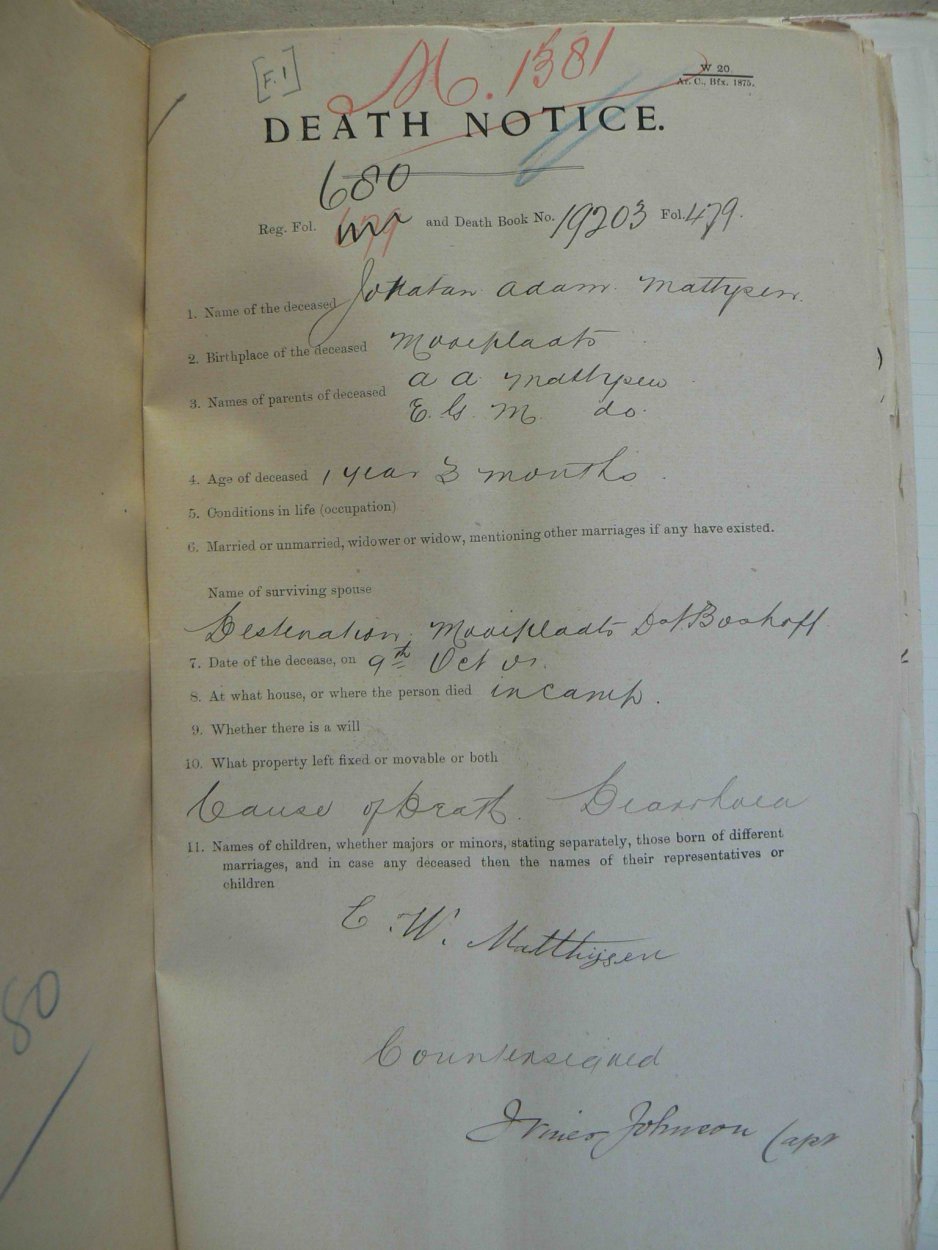 [F.1]
M. 1381
W 20.
Ar. C., Bfx. 1875.
DEATH NOTICE.
680
Reg. Fol. 679 and Death Book No. 19203 Fol. 479.
1. Name of the deceased Johatan Adam Mattysen.
2. Birthplace of the deceased Mooiplaats
3. Names of parents of deceased A A Mattysen
E. G. M. do.
4. Age of deceased 1 year 3 months.
5. Conditions in life (occupation)
6. Married or unmarried, widower or widow, mentioning other marriages if any have existed.
Name of surviving spouse
Destination, Mooiplaats Dst Boshoff.
7. Date of the decease, on 9th Oct 01.
8. At what house, or where the person died in camp.
9. Whether there is a will
10. What property left fixed or movable or both
Cause of Death. Diarrhoea
11. Names of children, whether majors or minors, stating separately, those born of different
marriages, and in case any deceased then the names of their representatives or
children
E. W. Matthysen
Countersigned
Johnson Capt
80